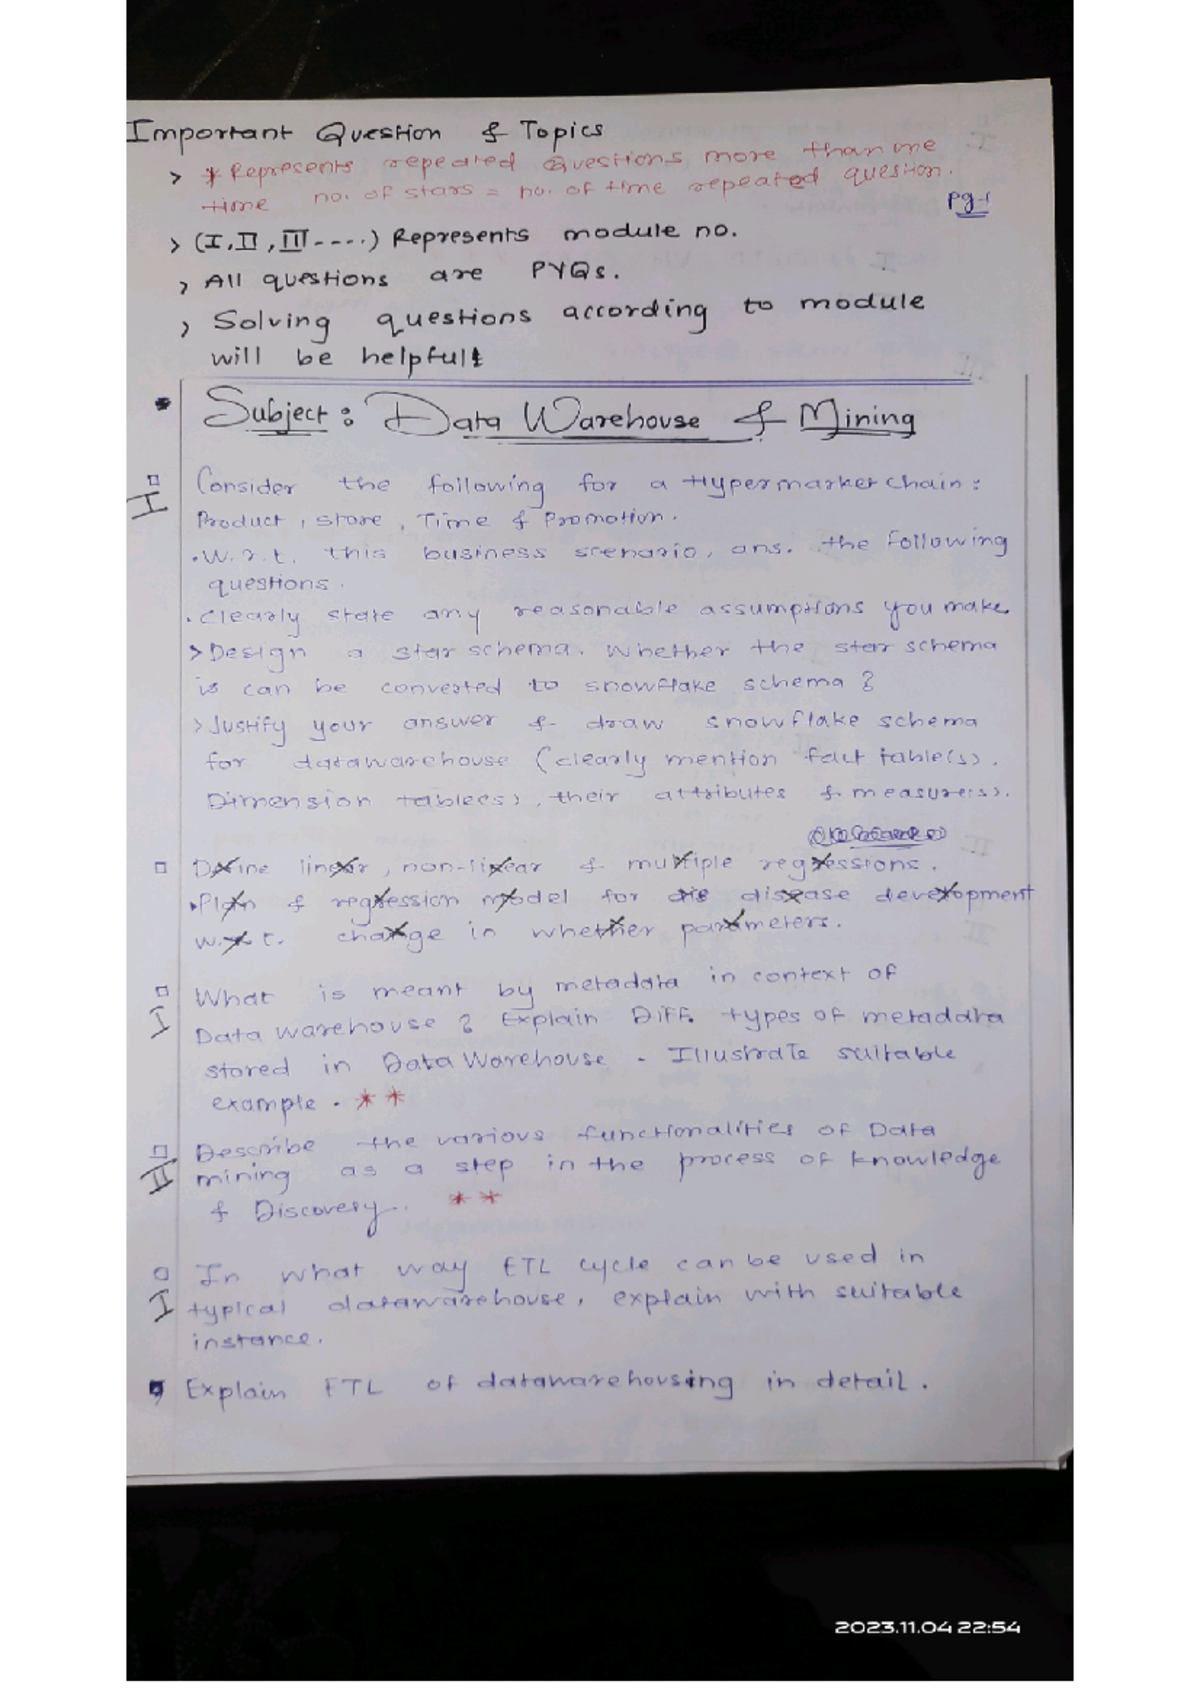 Important Question & Topics
> * Represents repeated Questions more than one
time no. of stars = no. of time repeated question.
Pg-1
> (I, II, III----) Represents module no.
> All questions are PYQs.
> Solving questions according to module
will be helpful!
Subject: Data Warehouse & Mining
I
Consider the following for a Hypermarket chain:
Product, store, Time & Promotion.
• W.r.t. this business scenario, ans. the following
questions.
• Clearly state any reasonable assumptions you make.
> Design a star schema. Whether the star schema
is can be converted to snowflake schema?
> Justify your answer & draw snowflake schema
for datawarehouse (clearly mention fact table(s),
Dimension table(s), their attributes & measure(s).
Define linear, non-linear & multiple regressions.
• Plan & regression model for disease development
w.r.t. change in whether parameters.
I
What is meant by metadata in context of
Data warehouse? Explain Diff. types of metadata
stored in Data Warehouse. Illustrate suitable
example. **
II
Describe the various functionalities of Data
mining as a step in the process of knowledge
& Discovery. **
I
In what way ETL cycle can be used in
typical datawarehouse, explain with suitable
instance.
Explain ETL of datawarehousing in detail.
2023.11.04 22:54